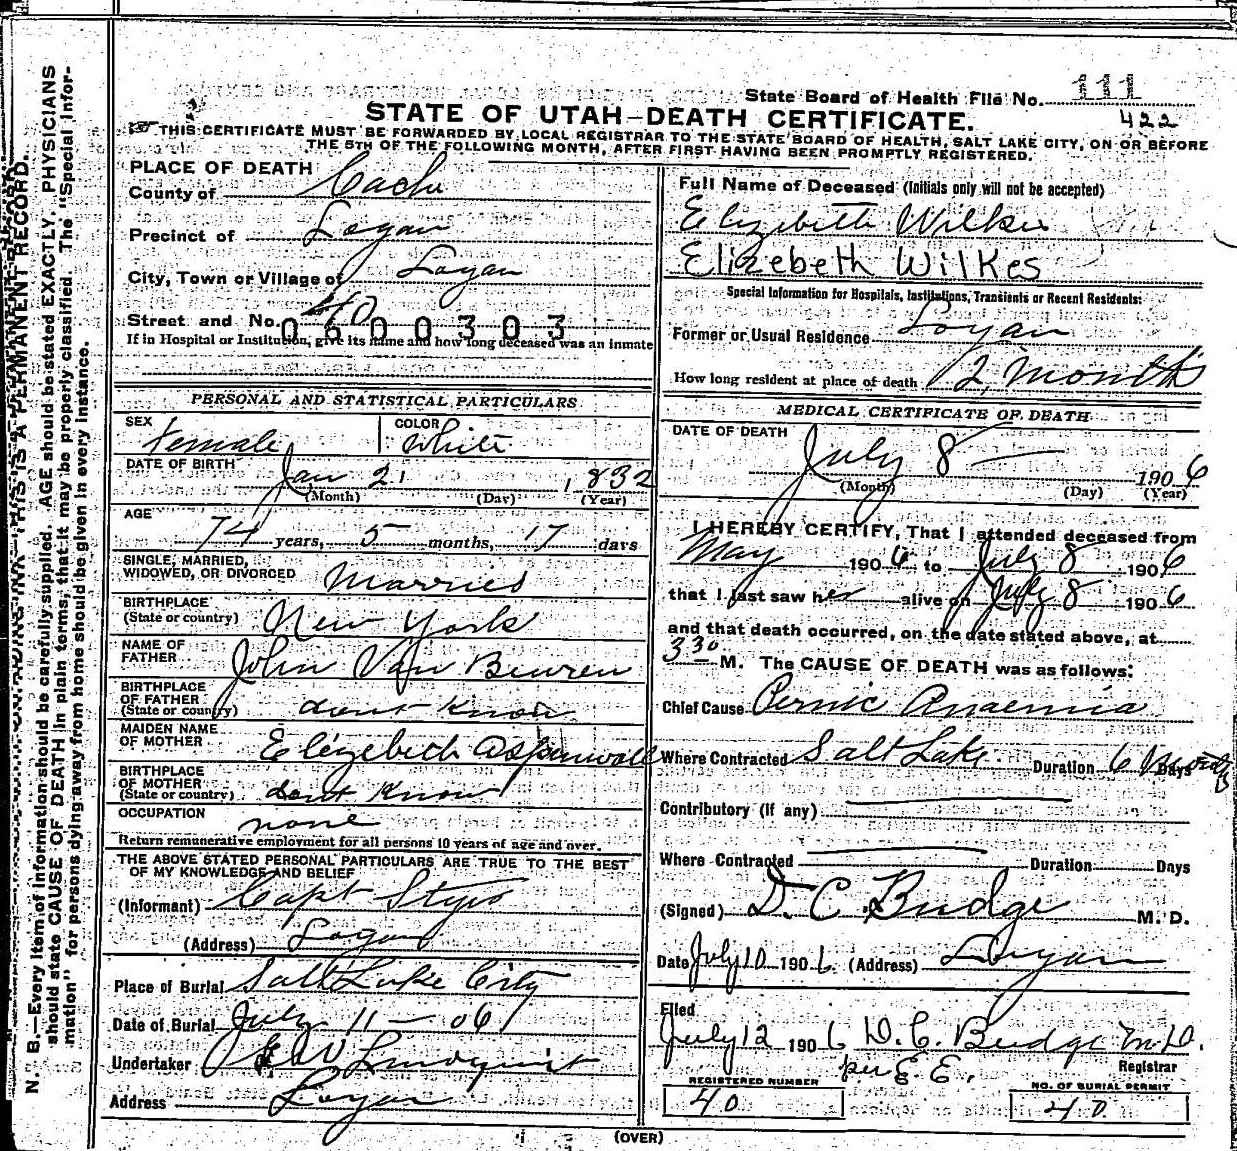 State Board of Health File No. 111
422
STATE OF UTAH—DEATH CERTIFICATE.
THIS CERTIFICATE MUST BE FORWARDED BY LOCAL REGISTRAR TO THE STATE BOARD OF HEALTH, SALT LAKE CITY, ON OR BEFORE
THE 5TH OF THE FOLLOWING MONTH, AFTER FIRST HAVING BEEN PROMPTLY REGISTERED.
N. B.—Every item of information should be carefully supplied. AGE should be stated EXACTLY. PHYSICIANS
should state CAUSE OF DEATH in plain terms, that it may be properly classified. The "Special Infor-
mation" for persons dying away from home should be given in every instance.
THIS IS A PERMANENT RECORD.
PLACE OF DEATH
County of Cache
Precinct of Logan
City, Town or Village of Logan
Street and No. 40
0600303
If in Hospital or Institution, give its name and how long deceased was an inmate
PERSONAL AND STATISTICAL PARTICULARS
SEX Female COLOR White
DATE OF BIRTH Jan 21, 1832
(Month) (Day) (Year)
AGE 74 years, 5 months, 17 days
SINGLE, MARRIED,
WIDOWED, OR DIVORCED Married
BIRTHPLACE
(State or country) New York
NAME OF
FATHER John Van Beuren
BIRTHPLACE
OF FATHER
(State or country) dont Know
MAIDEN NAME
OF MOTHER Elizebeth Aspinwall
BIRTHPLACE
OF MOTHER
(State or country) dont Know
OCCUPATION none
Return remunerative employment for all persons 10 years of age and over.
THE ABOVE STATED PERSONAL PARTICULARS ARE TRUE TO THE BEST
OF MY KNOWLEDGE AND BELIEF
(Informant) Capt
(Address) Logan
Place of Burial Salt Lake City
Date of Burial July 11 - 06
Undertaker Lindquist
Address Logan
Full Name of Deceased (Initials only will not be accepted)
Elizebeth Wilkes
Elizebeth Wilkes
Special Information for Hospitals, Institutions, Transients or Recent Residents:
Former or Usual Residence Logan
How long resident at place of death 2 months
MEDICAL CERTIFICATE OF DEATH
DATE OF DEATH
July 8 1906
(Month) (Day) (Year)
I HEREBY CERTIFY, That I attended deceased from
May 1906 to July 8 1906
that I last saw her alive on July 8 1906
and that death occurred, on the date stated above, at
3 30 M. The CAUSE OF DEATH was as follows:
Chief Cause Pernic Anaemia
Where Contracted Salt Lake Duration 6 Months Days
Contributory (if any)
Where Contracted Duration Days
(Signed) D. C. Budge M. D.
Date July 10 1906. (Address) Logan
Filed
July 12 1906 D. C. Budge M.D.
per E. E. Registrar
REGISTERED NUMBER
40
NO. OF BURIAL PERMIT
40
(OVER)